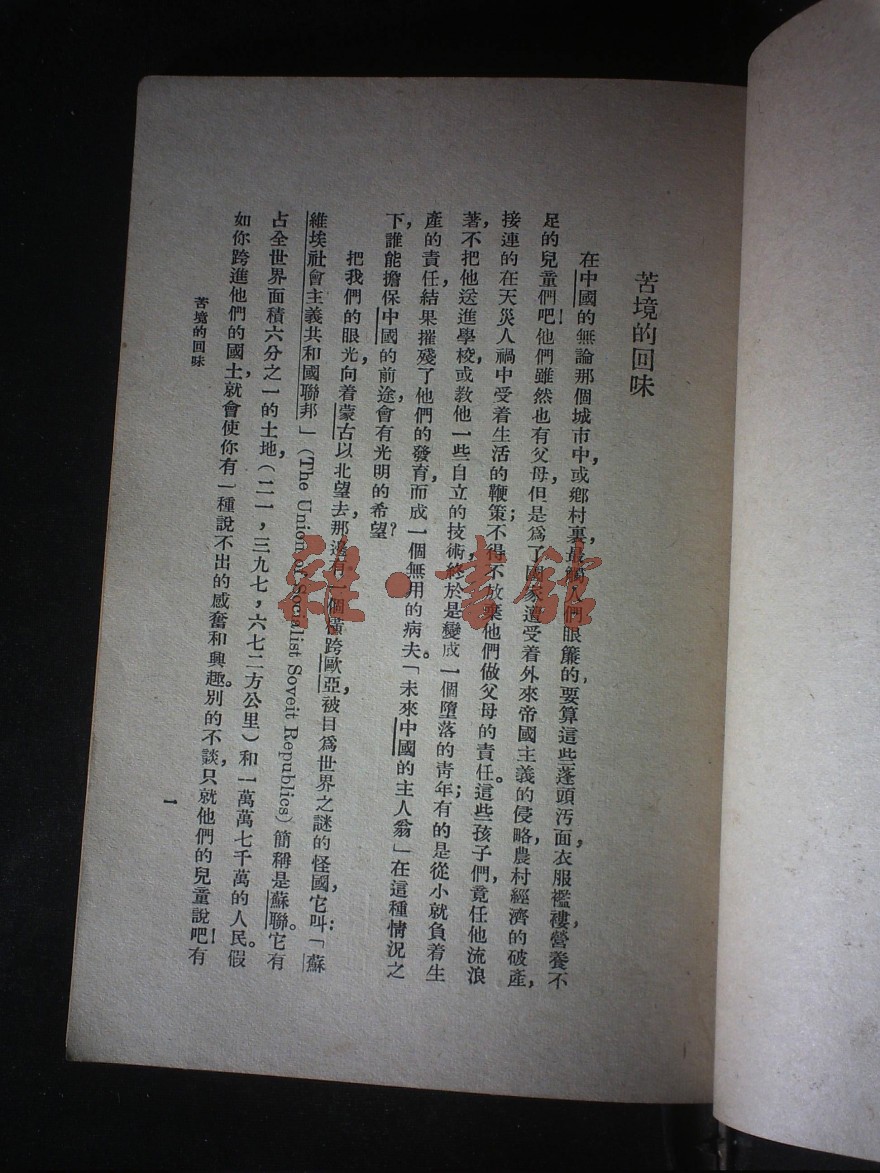 苦境的回味
在中國的無論那個城市中，或鄉村裏，最觸人們眼簾的，要算這些蓬頭汚面，衣服襤褸，營養不
足的兒童們吧！他們雖然也有父母，但是爲了國家遭受着外來帝國主義的侵略，農村經濟的破產，
接連的在天災人禍中受着生活的鞭策；不得不放棄他們做父母的責任。這些孩子們，竟任他流浪
著，不把他送進學校，或教他一些自立的技術，終於是變成一個墮落的靑年；有的是從小就負着生
產的責任，結果摧殘了他們的發育，而成一個無用的病夫。「未來中國的主人翁」在這種情況之
下，誰能擔保中國的前途會有光明的希望？
把我們的眼光，向着蒙古以北望去，那邊有一個橫跨歐亞，被目爲世界之謎的怪國，它叫：「蘇
維埃社會主義共和國聯邦」（The Union of Socialist Soveit Republics）簡稱是蘇聯。它有
占全世界面積六分之一的土地，（二一，三九七，六七二方公里）和一萬萬七千萬的人民。假
如你跨進他們的國土，就會使你有一種說不出的感奮和興趣。別的不談，只就他們的兒童說吧！有
苦境的回味
1
雜·書館